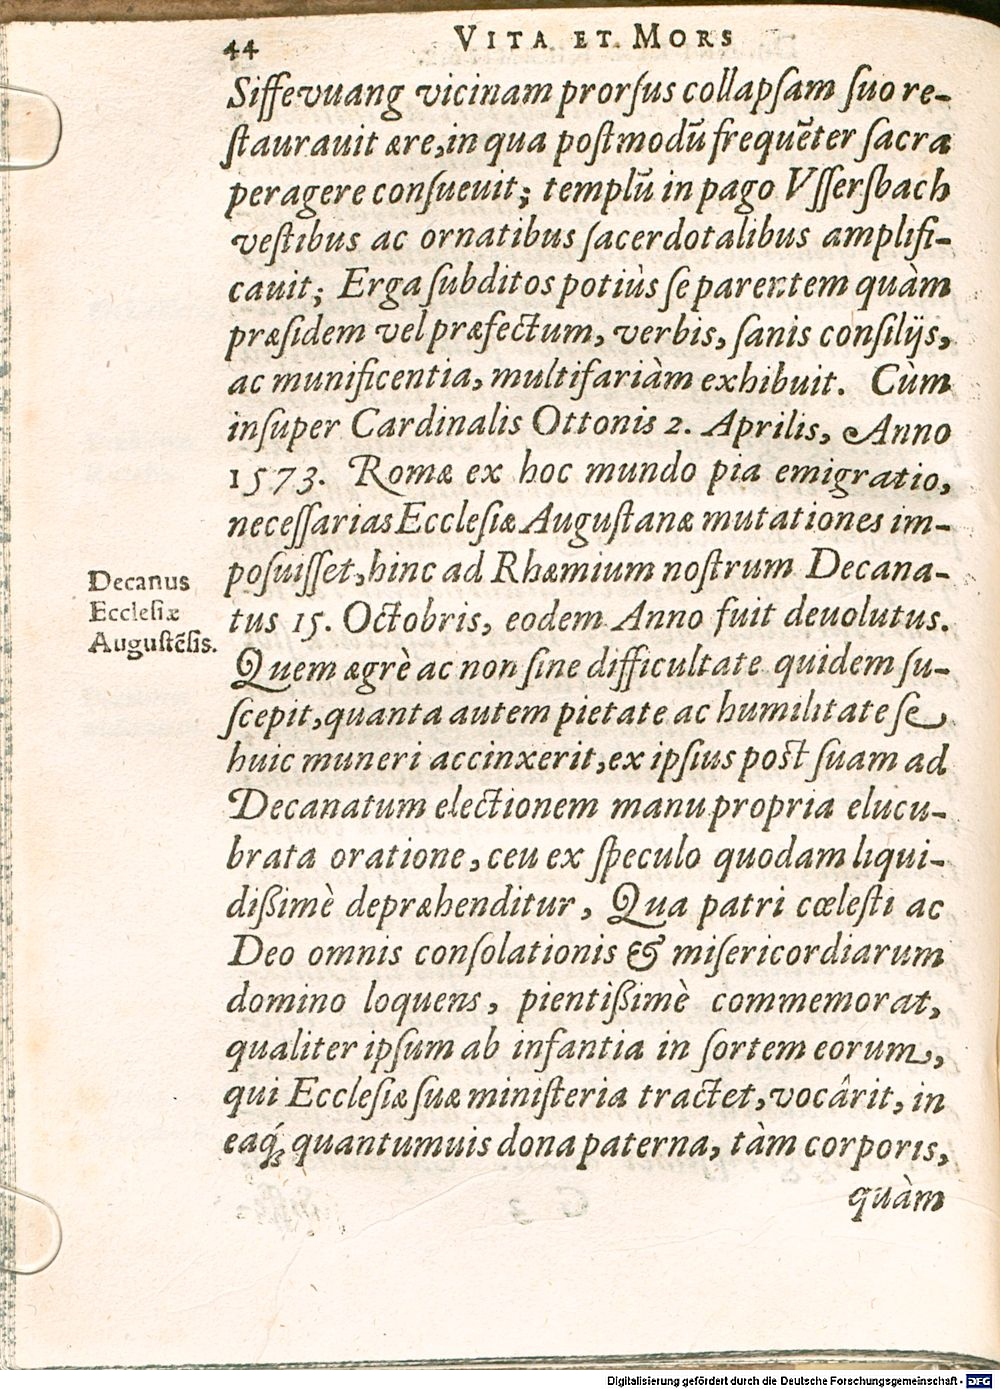 44 VITA ET MORS
Siſſevuang vicinam prorſus collapſam ſuo re-
ſtaurauit ære, in qua poſtmodũ frequẽter ſacra
peragere conſueuit; templũ in pago Vſſersbach
veſtibus ac ornatibus ſacerdotalibus amplifi-
cauit; Erga ſubditos potiùs ſe parentem quàm
præſidem vel præfectum, verbis, ſanis conſilijs,
ac munificentia, multifariàm exhibuit. Cùm
inſuper Cardinalis Ottonis 2. Aprilis, Anno
1573. Romæ ex hoc mundo pia emigratio,
neceſſarias Eccleſiæ Auguſtanæ mutationes im-
poſuiſſet, hinc ad Rhæmium noſtrum Decana-
tus 15. Octobris, eodem Anno fuit deuolutus.
Decanus
Eccleſiæ
Auguſtẽſis.
Quem ægrè ac non ſine difficultate quidem ſu-
ſcepit, quanta autem pietate ac humilitate ſe
huic muneri accinxerit, ex ipſius poſt ſuam ad
Decanatum electionem manu propria elucu-
brata oratione, ceu ex ſpeculo quodam liqui-
dißimè depræhenditur, Qua patri cœleſti ac
Deo omnis conſolationis & miſericordiarum
domino loquens, pientißimè commemorat,
qualiter ipſum ab infantia in ſortem eorum,
qui Eccleſiæ ſuæ miniſteria tractet, vocârit, in
eaq́; quantumuis dona paterna, tàm corporis,
quàm
Digitalisierung gefördert durch die Deutsche Forschungsgemeinschaft - DFG